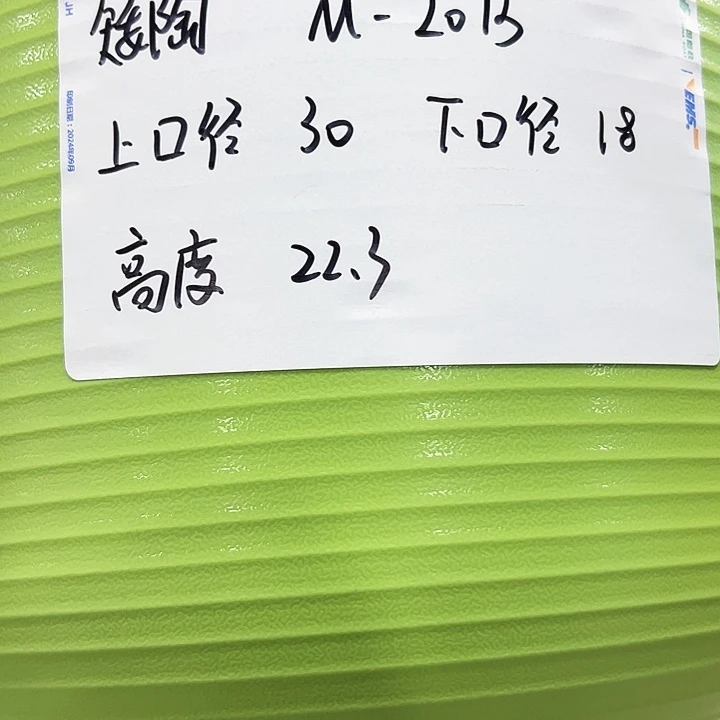 矮陶 M-2013
上口径 30 下口径 18
高度 22.3
JH
印制日期:2024年09月
EMS